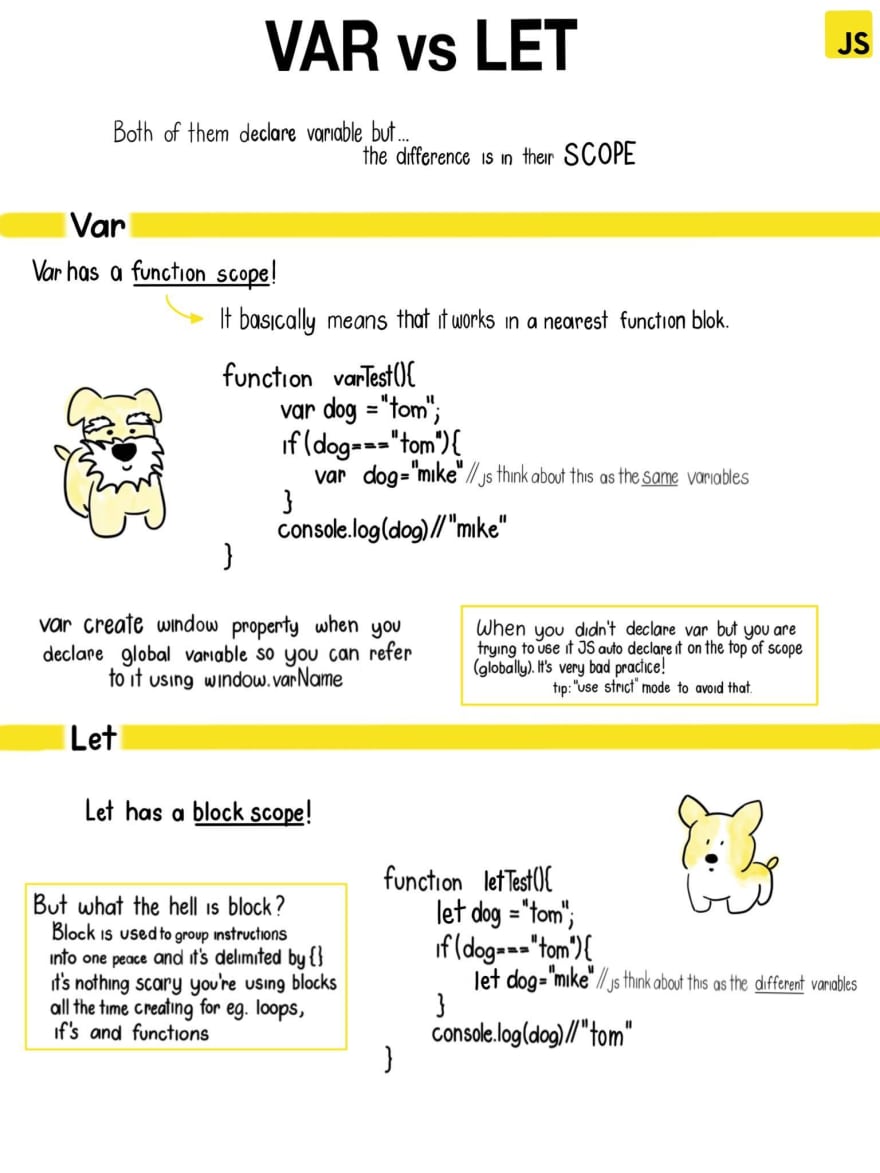 VAR vs LET
JS
Both of them declare variable but...
the difference is in their SCOPE
Var
Var has a function scope!
It basically means that it works in a nearest function blok.
function varTest(){
var dog ="tom";
if(dog==="tom"){
var dog="mike"//js think about this as the same variables
}
console.log(dog)//"mike"
}
var create window property when you
declare global variable so you can refer
to it using window.varName
When you didn't declare var but you are
trying to use it JS auto declare it on the top of scope
(globally). It's very bad practice!
tip:"use strict" mode to avoid that.
Let
Let has a block scope!
But what the hell is block?
Block is used to group instructions
into one peace and it's delimited by {}
it's nothing scary you're using blocks
all the time creating for eg. loops,
if's and functions
function letTest(){
let dog ="tom";
if(dog==="tom"){
let dog="mike"//js think about this as the different variables
}
console.log(dog)//"tom"
}